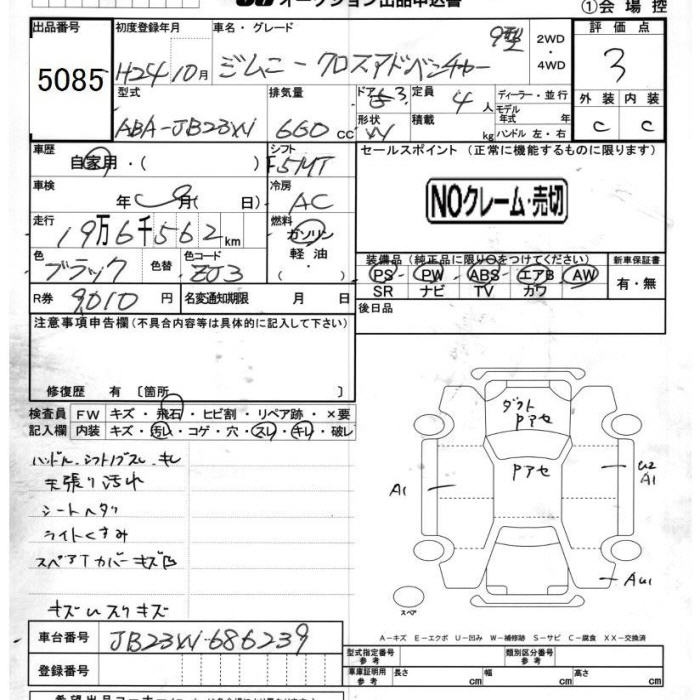 オークション出品申込書
①会場控
出品番号 初度登録年月 車名・グレード 評価点
5085 H24 10月 ジムニー クロスアドベンチャー 9型 2WD・4WD 3
型式 排気量 ドア 3 定員 4人 ディーラー・並行 外装 内装
ABA-JB23W 660cc 形状 W 積載 kg モデル年式 年 ハンドル 左・右 C C
車歴 自家用・( ) シフト F5MT セールスポイント (正常に機能するものに限ります)
車検 年 月( 日) 冷房 AC
NOクレーム・売切
走行 19万6千562km 燃料 ガソリン・軽油・( )
色 ブラック 色替 色コード ZJ3
装備品(純正品に限り○をつけてください) 新車保証書
PS PW ABS エアB AW 有・無
SR ナビ TV カワ
R券 9010円 名変通知期限 月 日 後日品
注意事項申告欄(不具合内容等は具体的に記入して下さい)
修復歴 有 〔箇所 〕
検査員 FW キズ・飛石・ヒビ割・リペア跡・×要
記入欄 内装 キズ・汚れ・コゲ・穴・スレ・キレ・破レ
ハンドル、シフトノブスレ、キレ
天張り汚れ
シートヘタリ
ライトくすみ
スペアTカバーキズ凹
キズ凹スリキズ
ダクト
Pアセ
Pアセ
A1
U2
A1
AU1
スペア
A-キズ E-エクボ U-凹み W-補修跡 S-サビ C-腐食 XX-交換済
車台番号 JB23W-686239
登録番号
型式指定番号 参考 類別区分番号 参考
車庫証明用 参考 長さ 幅 高さ